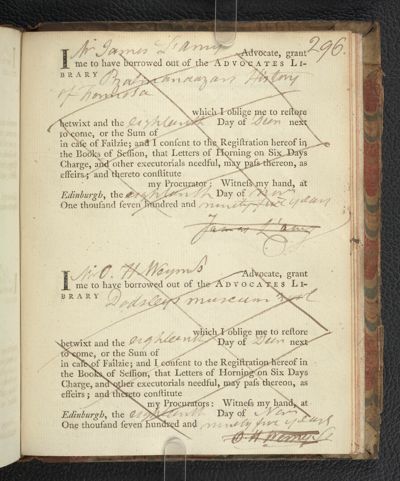 296.
I Mr James Advocate, grant
me to have borrowed out of the ADVOCATES LI-
BRARY Psalmanaazars History
of Formosa
which I oblige me to reſtore
betwixt and the eighteenth Day of next
to come, or the Sum of
in caſe of Failzie; and I conſent to the Regiſtration hereof in
the Books of Seſſion, that Letters of Horning on Six Days
Charge, and other executorials needful, may paſs thereon, as
effeirs; and thereto conſtitute
my Procurator: Witneſs my hand, at
Edinburgh, the eighteenth Day of
One thouſand ſeven hundred and ninety five years
James
I Mr O. H Advocate, grant
me to have borrowed out of the ADVOCATES LI-
BRARY Dodsleys museum
which I oblige me to reſtore
betwixt and the eighteenth Day of next
to come, or the Sum of
in caſe of Failzie; and I conſent to the Regiſtration hereof in
the Books of Seſſion, that Letters of Horning on Six Days
Charge, and other executorials needful, may paſs thereon, as
effeirs; and thereto conſtitute
my Procurators: Witneſs my hand, at
Edinburgh, the eighteenth Day of
One thouſand ſeven hundred and ninety five years